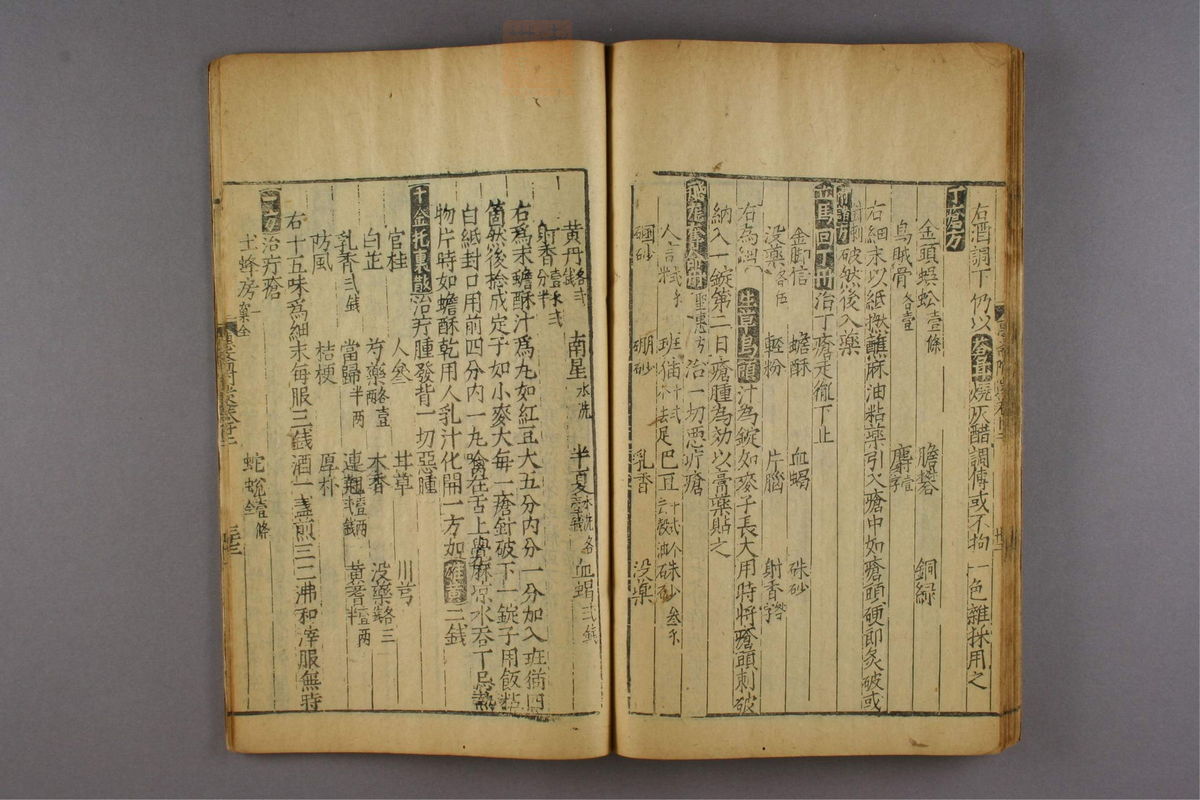 右酒調下仍以蒼耳燒灰醋調傅或不拘一色雜採用之
丁瘡方
金頭蜈蚣壹條 膽礬 銅綠
烏賊骨各壹 麝香
右細末以紙撚蘸麻油粘藥引入瘡中如瘡頭硬即灸破或
破然後入藥
立馬回丁丹治丁瘡走徹下止
金脚信 蟾酥 血蝎 硃砂
没藥各五 輕粉 片腦 射香
右為細 生草烏頭汁為錠如麥子長大用時將瘡頭刺破
納入一錠第二日瘡腫為効以膏藥貼之
飛龍奪命丹聖惠方治一切惡疔瘡
人言 班猫去足 巴豆 硃砂
硇砂 硼砂 乳香 没藥
黃丹各弐錢 南星水洗 半夏水洗各 血蝎弐錢
射香
右為末蟾酥汁為丸如紅豆大五分内分一分加入班猫四
箇然後捻成定子如小麥大每一瘡針破下一錠子用飯粘
白紙封口用前四分内一丸噙在舌上覺麻凉水吞丁忌熱
物片時如蟾酥乾用人乳汁化開一方加雄黃三錢
千金托裏散治疔腫發背一切惡腫
官桂 人參 甘草 川芎
白芷 芍藥各壹兩 木香 没藥各三
乳香弐錢 當歸半兩 連翹壹兩弐錢 黃蓍壹兩半
防風 桔梗 厚朴
右十五味為細末每服三錢酒一盞煎三二沸和滓服無時
二方治疔瘡
土蜂房一窠全 蛇蛻壹條